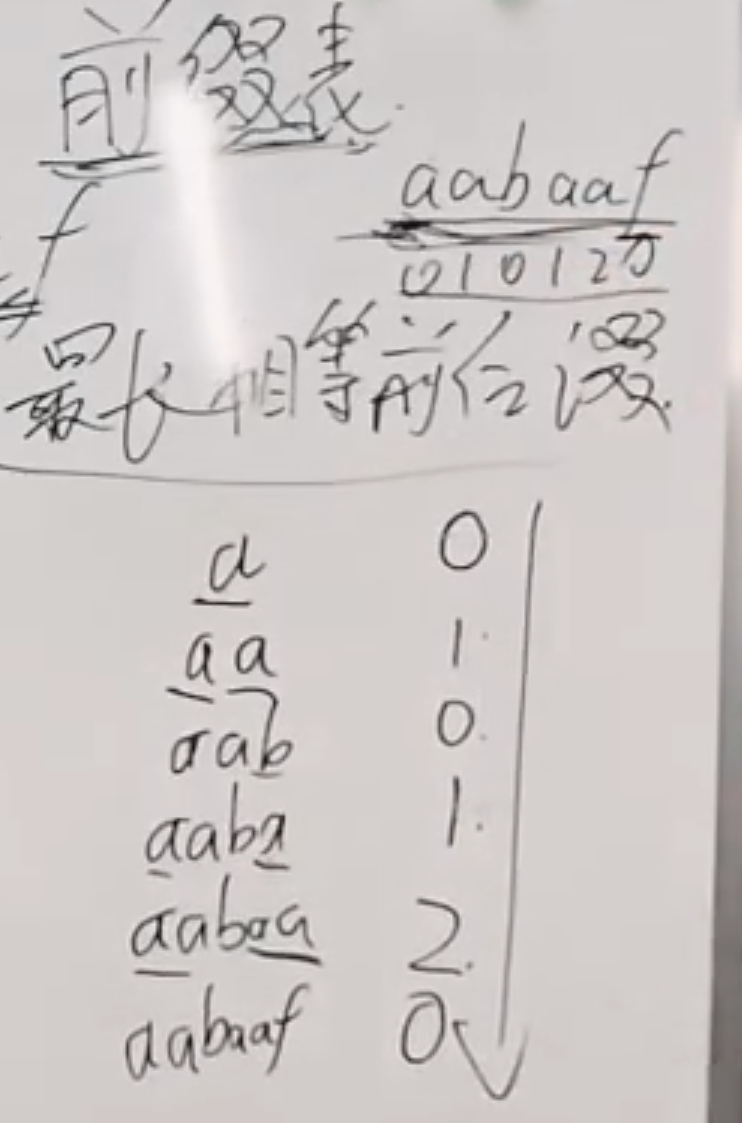 前缀表
aabaaf
f
010120
最长相等前后缀
a 0
aa 1
aab 0
aaba 1
aabaa 2
aabaaf 0